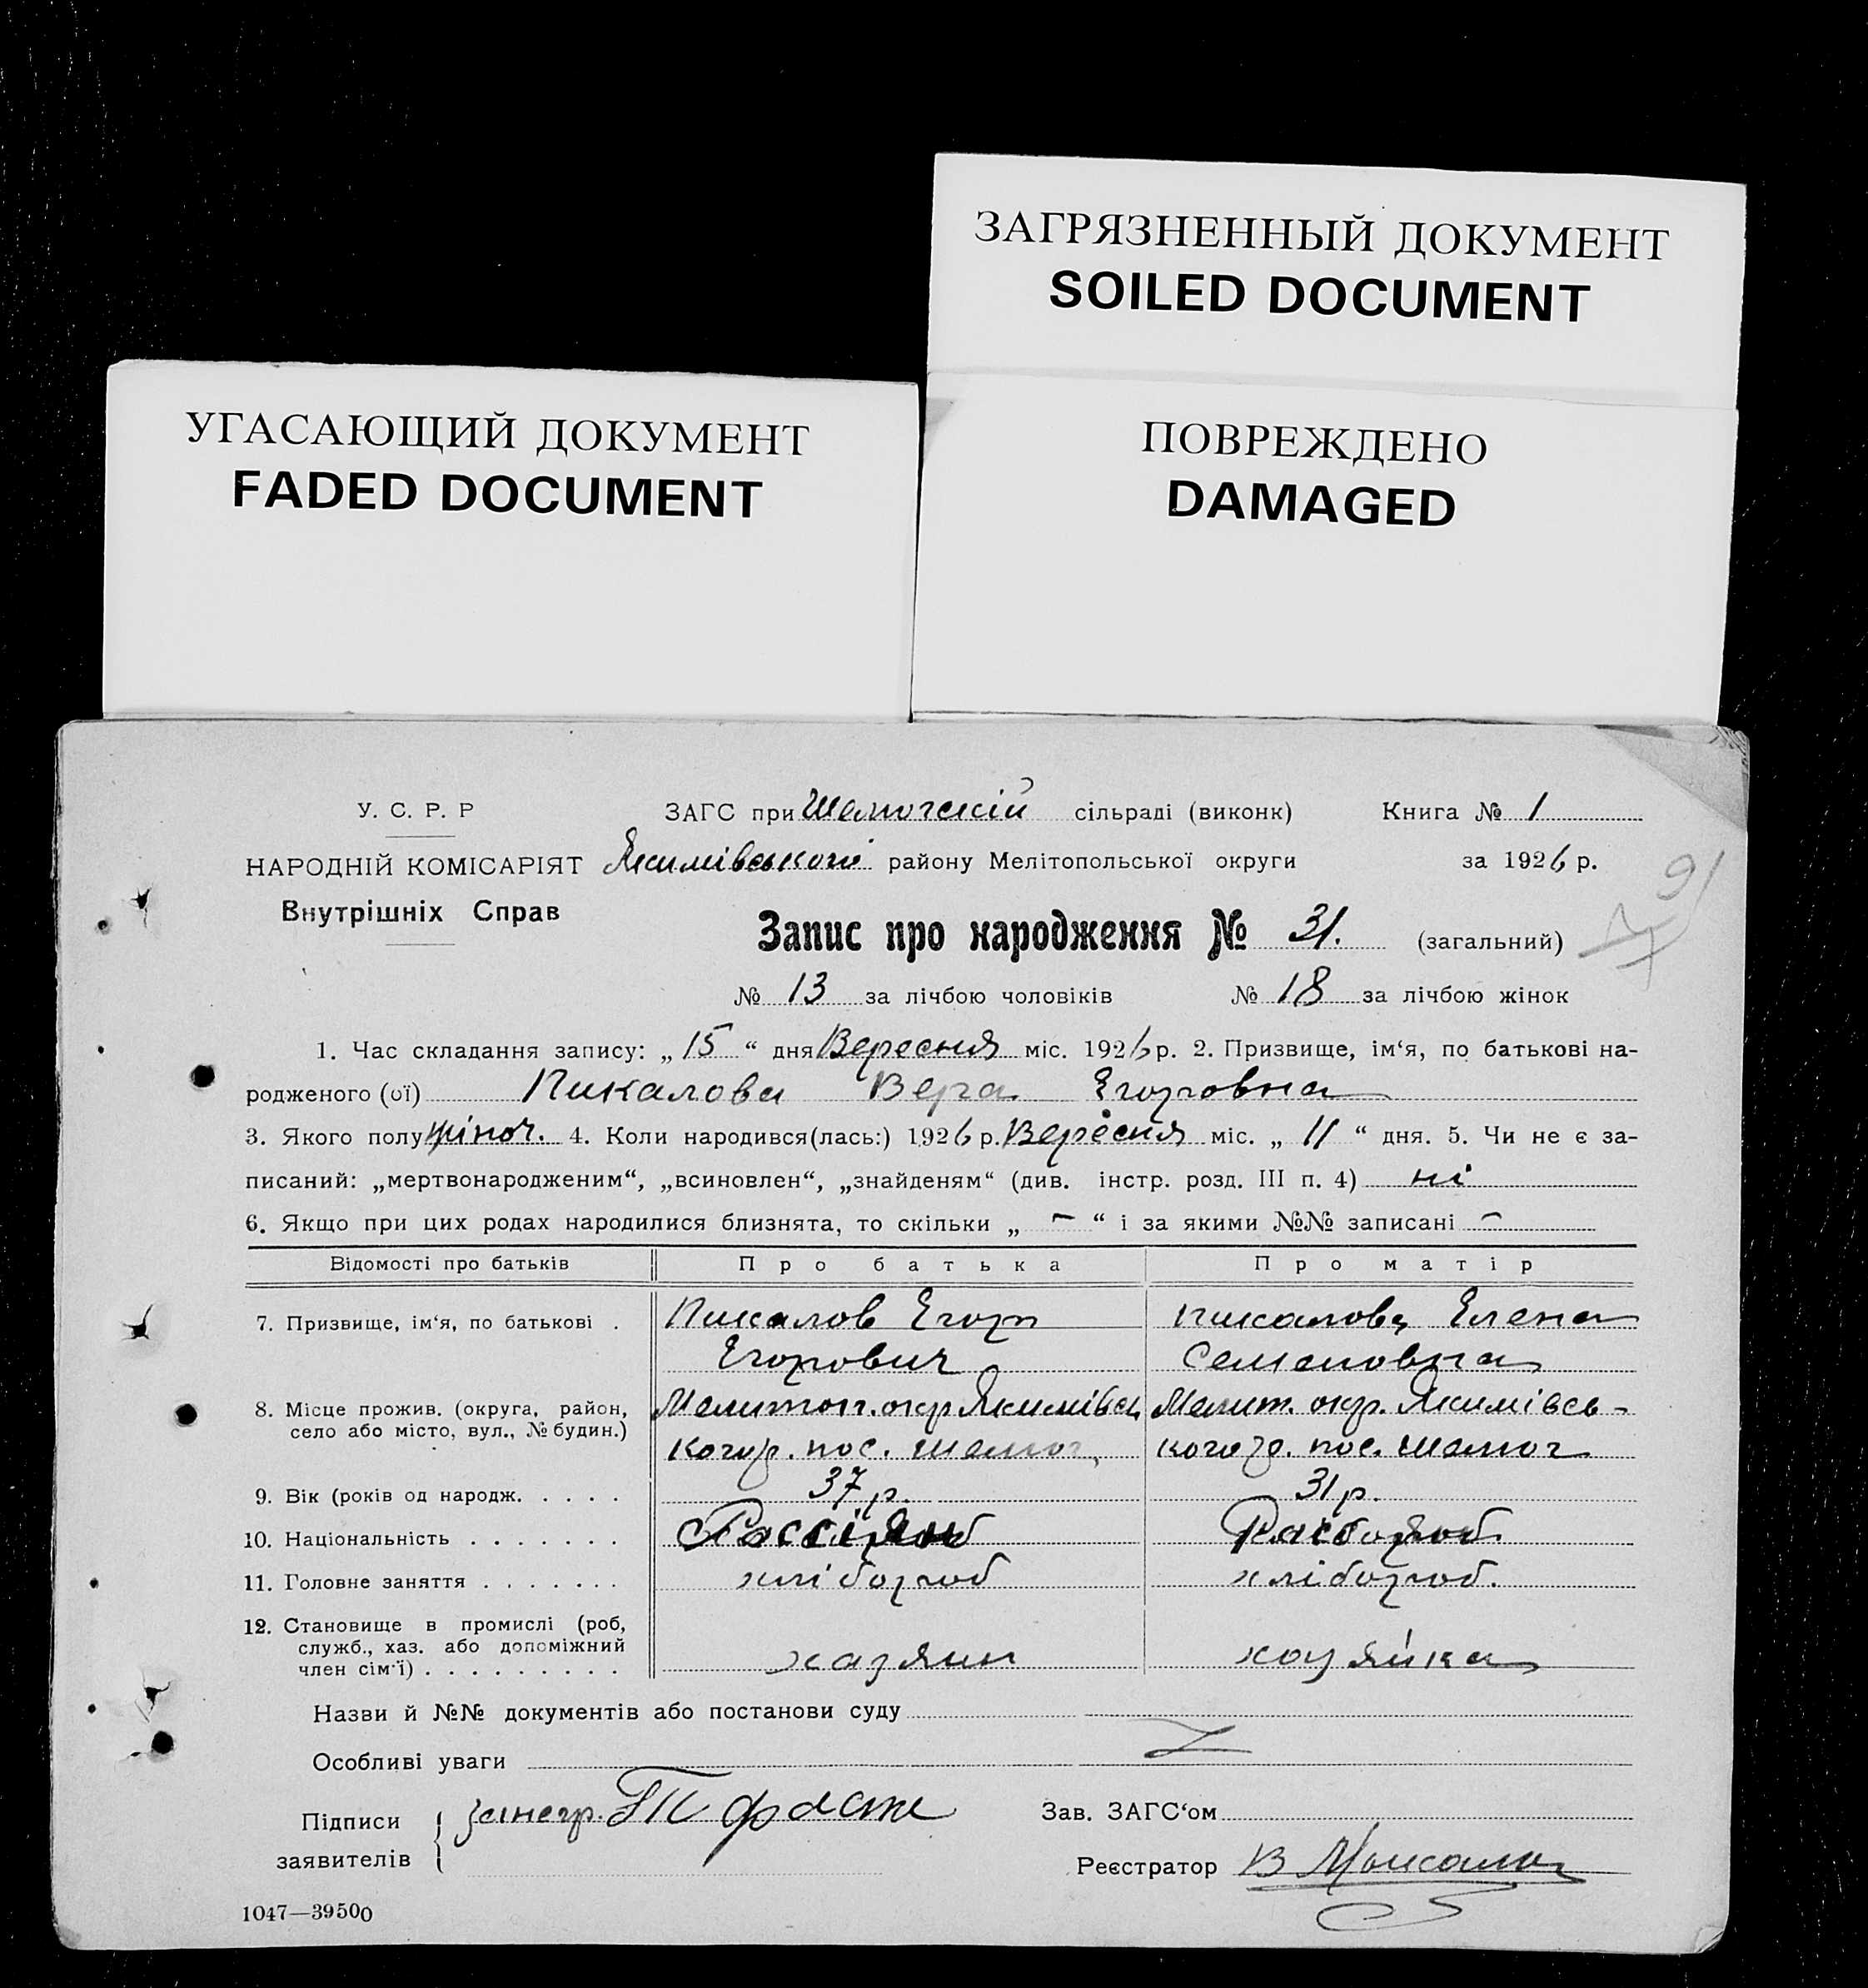 ЗАГРЯЗНЕННЫЙ ДОКУМЕНТ
SOILED DOCUMENT
УГАСАЮЩИЙ ДОКУМЕНТ
FADED DOCUMENT
ПОВРЕЖДЕНО
DAMAGED
У. С. Р. Р ЗАГС при сільраді (виконк) Книга № 1
НАРОДНІЙ КОМІСАРІЯТ Якимівського району Мелітопольської округи за 1926 р.
Внутрішніх Справ
91
Запис про народження № 31. (загальний)
№ 13 за лічбою чоловіків № 18 за лічбою жінок
1. Час складання запису: „15“ дня Вересня міс. 1926 р. 2. Призвище, ім‘я, по батькові на-
родженого (ої) Пикалова Вера Егоровна
3. Якого полу жіноч. 4. Коли народився(лась:) 1926 р. Вересня міс. „11“ дня. 5. Чи не є за-
писаний: „мертвонародженим“, „всиновлен“, „знайденям“ (див. інстр. розд. III п. 4) ні
6. Якщо при цих родах народилися близнята, то скільки „ – “ і за якими №№ записані –
Відомості про батьків Про батька Про матір
7. Призвище, ім‘я, по батькові . Пикалов Егор Пикалова Елена
Егорович Семеновна
8. Місце прожив. (округа, район, Мелитоп. окр Якимівсь Мелит. окр. Якимівсь-
село або місто, вул., № будин.) кого р. пос. кого р. пос.
9. Вік (років од народж. . . . . 37 р. 31 р.
10. Національність . . . . . . .
11. Головне заняття . . . . . . . хлібороб хлібороб.
12. Становище в промислі (роб, служб., хаз. або допоміжний член сім‘ї) . . . . . . . . . хазяин хозяйка
Назви й №№ документів або постанови суду
Особливі уваги
Підписи заявителів
Зав. ЗАГС‘ом
Реєстратор В
1047—39500